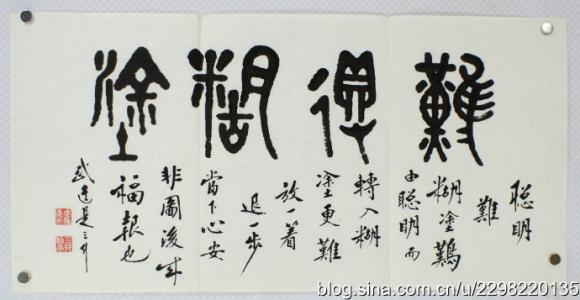 難得糊塗
聰明
難
糊塗難
由聰明而
轉入糊
塗更難
放一着
退一步
當下心安
非圖後來
福報也
blog.sina.com.cn/u/2298220135